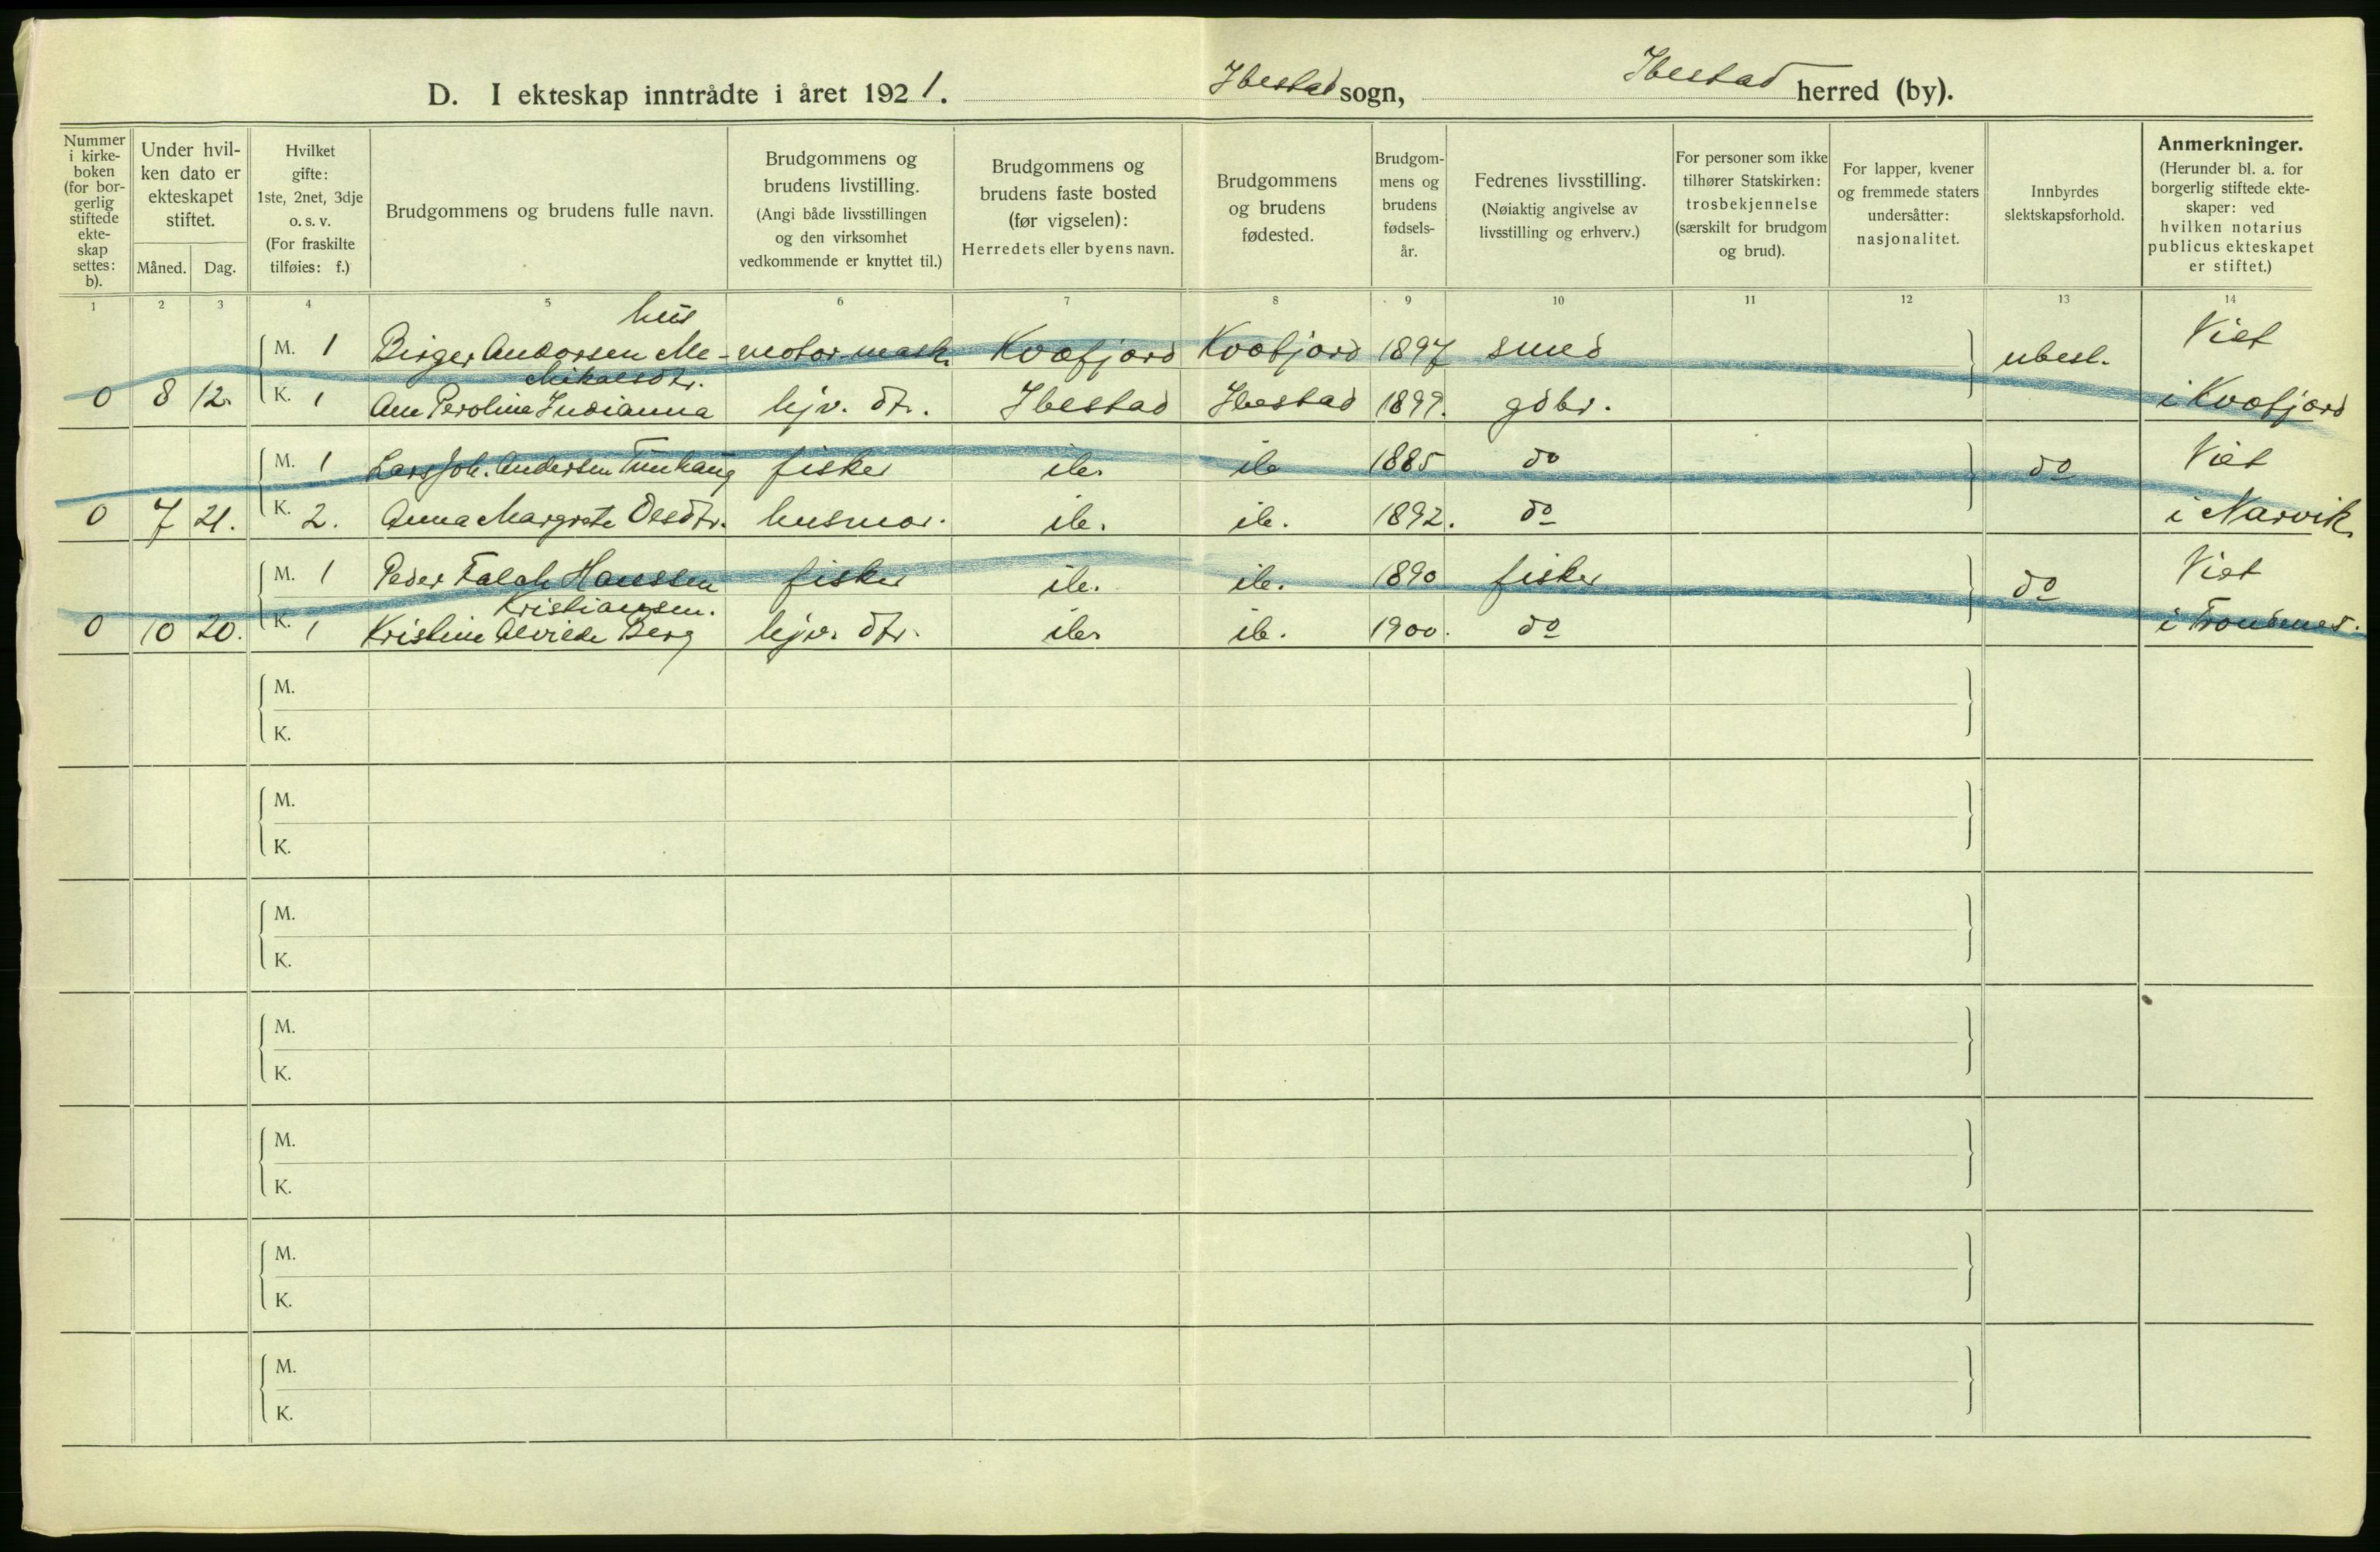 D. I ekteskap inntrådte i året 1921. Ibestad sogn, Ibestad herred (by).
Nummer i kirke-boken (for bor-gerlig stiftede ekte-skap settes: b).
Under hvil-ken dato er ekteskapet stiftet.
Måned. Dag.
Hvilket gifte: 1ste, 2net, 3dje o. s. v. (For fraskilte tilføies: f.)
Brudgommens og brudens fulle navn.
Brudgommens og brudens livstilling. (Angi både livsstillingen og den virksomhet vedkommende er knyttet til.)
Brudgommens og brudens faste bosted (før vigselen): Herredets eller byens navn.
Brudgommens og brudens fødested.
Brudgom-mens og brudens fødsels-år.
Fedrenes livsstilling. (Nøiaktig angivelse av livsstilling og erhverv.)
For personer som ikke tilhører Statskirken: trosbekjennelse (særskilt for brudgom og brud).
For lapper, kvener og fremmede staters undersåtter: nasjonalitet.
Innbyrdes slektskapsforhold.
Anmerkninger. (Herunder bl. a. for borgerlig stiftede ekte-skaper: ved hvilken notarius publicus ekteskapet er stiftet.)
1 2 3 4 5 6 7 8 9 10 11 12 13 14
hus
M. 1 Birger Andorsen Me- motor-mask. Kvæfjord Kvæfjord 1897 smed ubesl. Viet
Mikalsdtr.
0 8 12. K. 1 Ane Peroline Indianna hjv. dtr. Ibestad Ibestad 1899. gdbr. i Kvæfjord
M. 1 Lars Joh. Andersen Tunhaug fisker ib. ib 1885 do do Viet
0 7 21. K. 2. Anna Margrete Olesdtr. husmor. ib. ib. 1892. do i Narvik.
M. 1 Peder Falch Hanssen fisker ib. ib. 1890 fisker do Viet
Kristiansen.
0 10 20. K. 1 Kristine Alvilde Berg hjv. dtr. ib. ib. 1900. do i Trondenes.
M.
K.
M.
K.
M.
K.
M.
K.
M.
K.
M.
K.
M.
K.